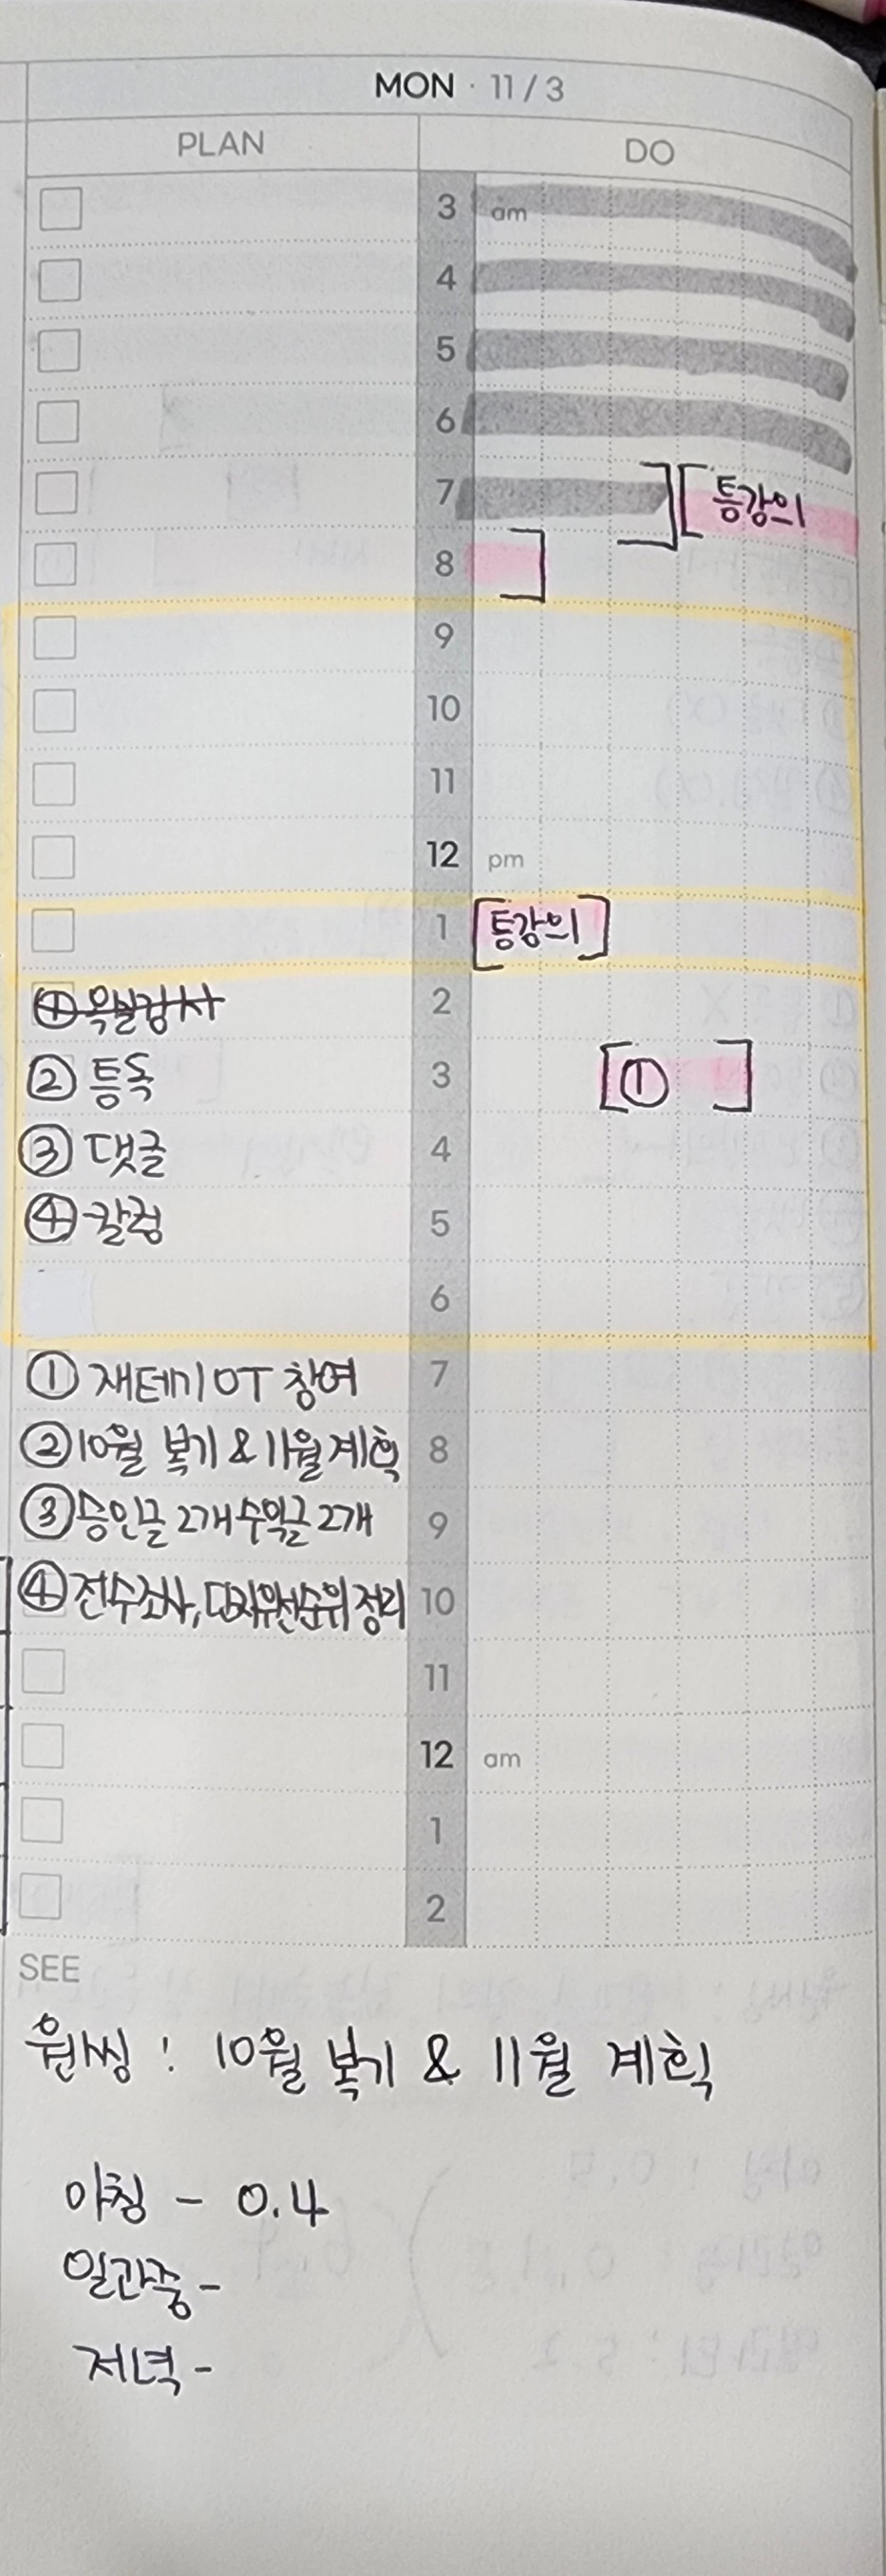 MON · 11 / 3
PLAN
DO
3 am
4
5
6
7 틍강의
8
9
10
11
12 pm
1 틍강의
① 목실감사 2
② 틍독 3 ①
③ 댓글 4
④ 칼럼 5
6
① 재테기 OT 참여 7
② 10월 복기 & 11월 계획 8
③ 승인글 2개 수익글 2개 9
④ 전수조사, 단지우선순위 정리 10
11
12 am
1
2
SEE
원씽 : 10월 복기 & 11월 계획
아침 - 0.4
일과중 -
저녁 -